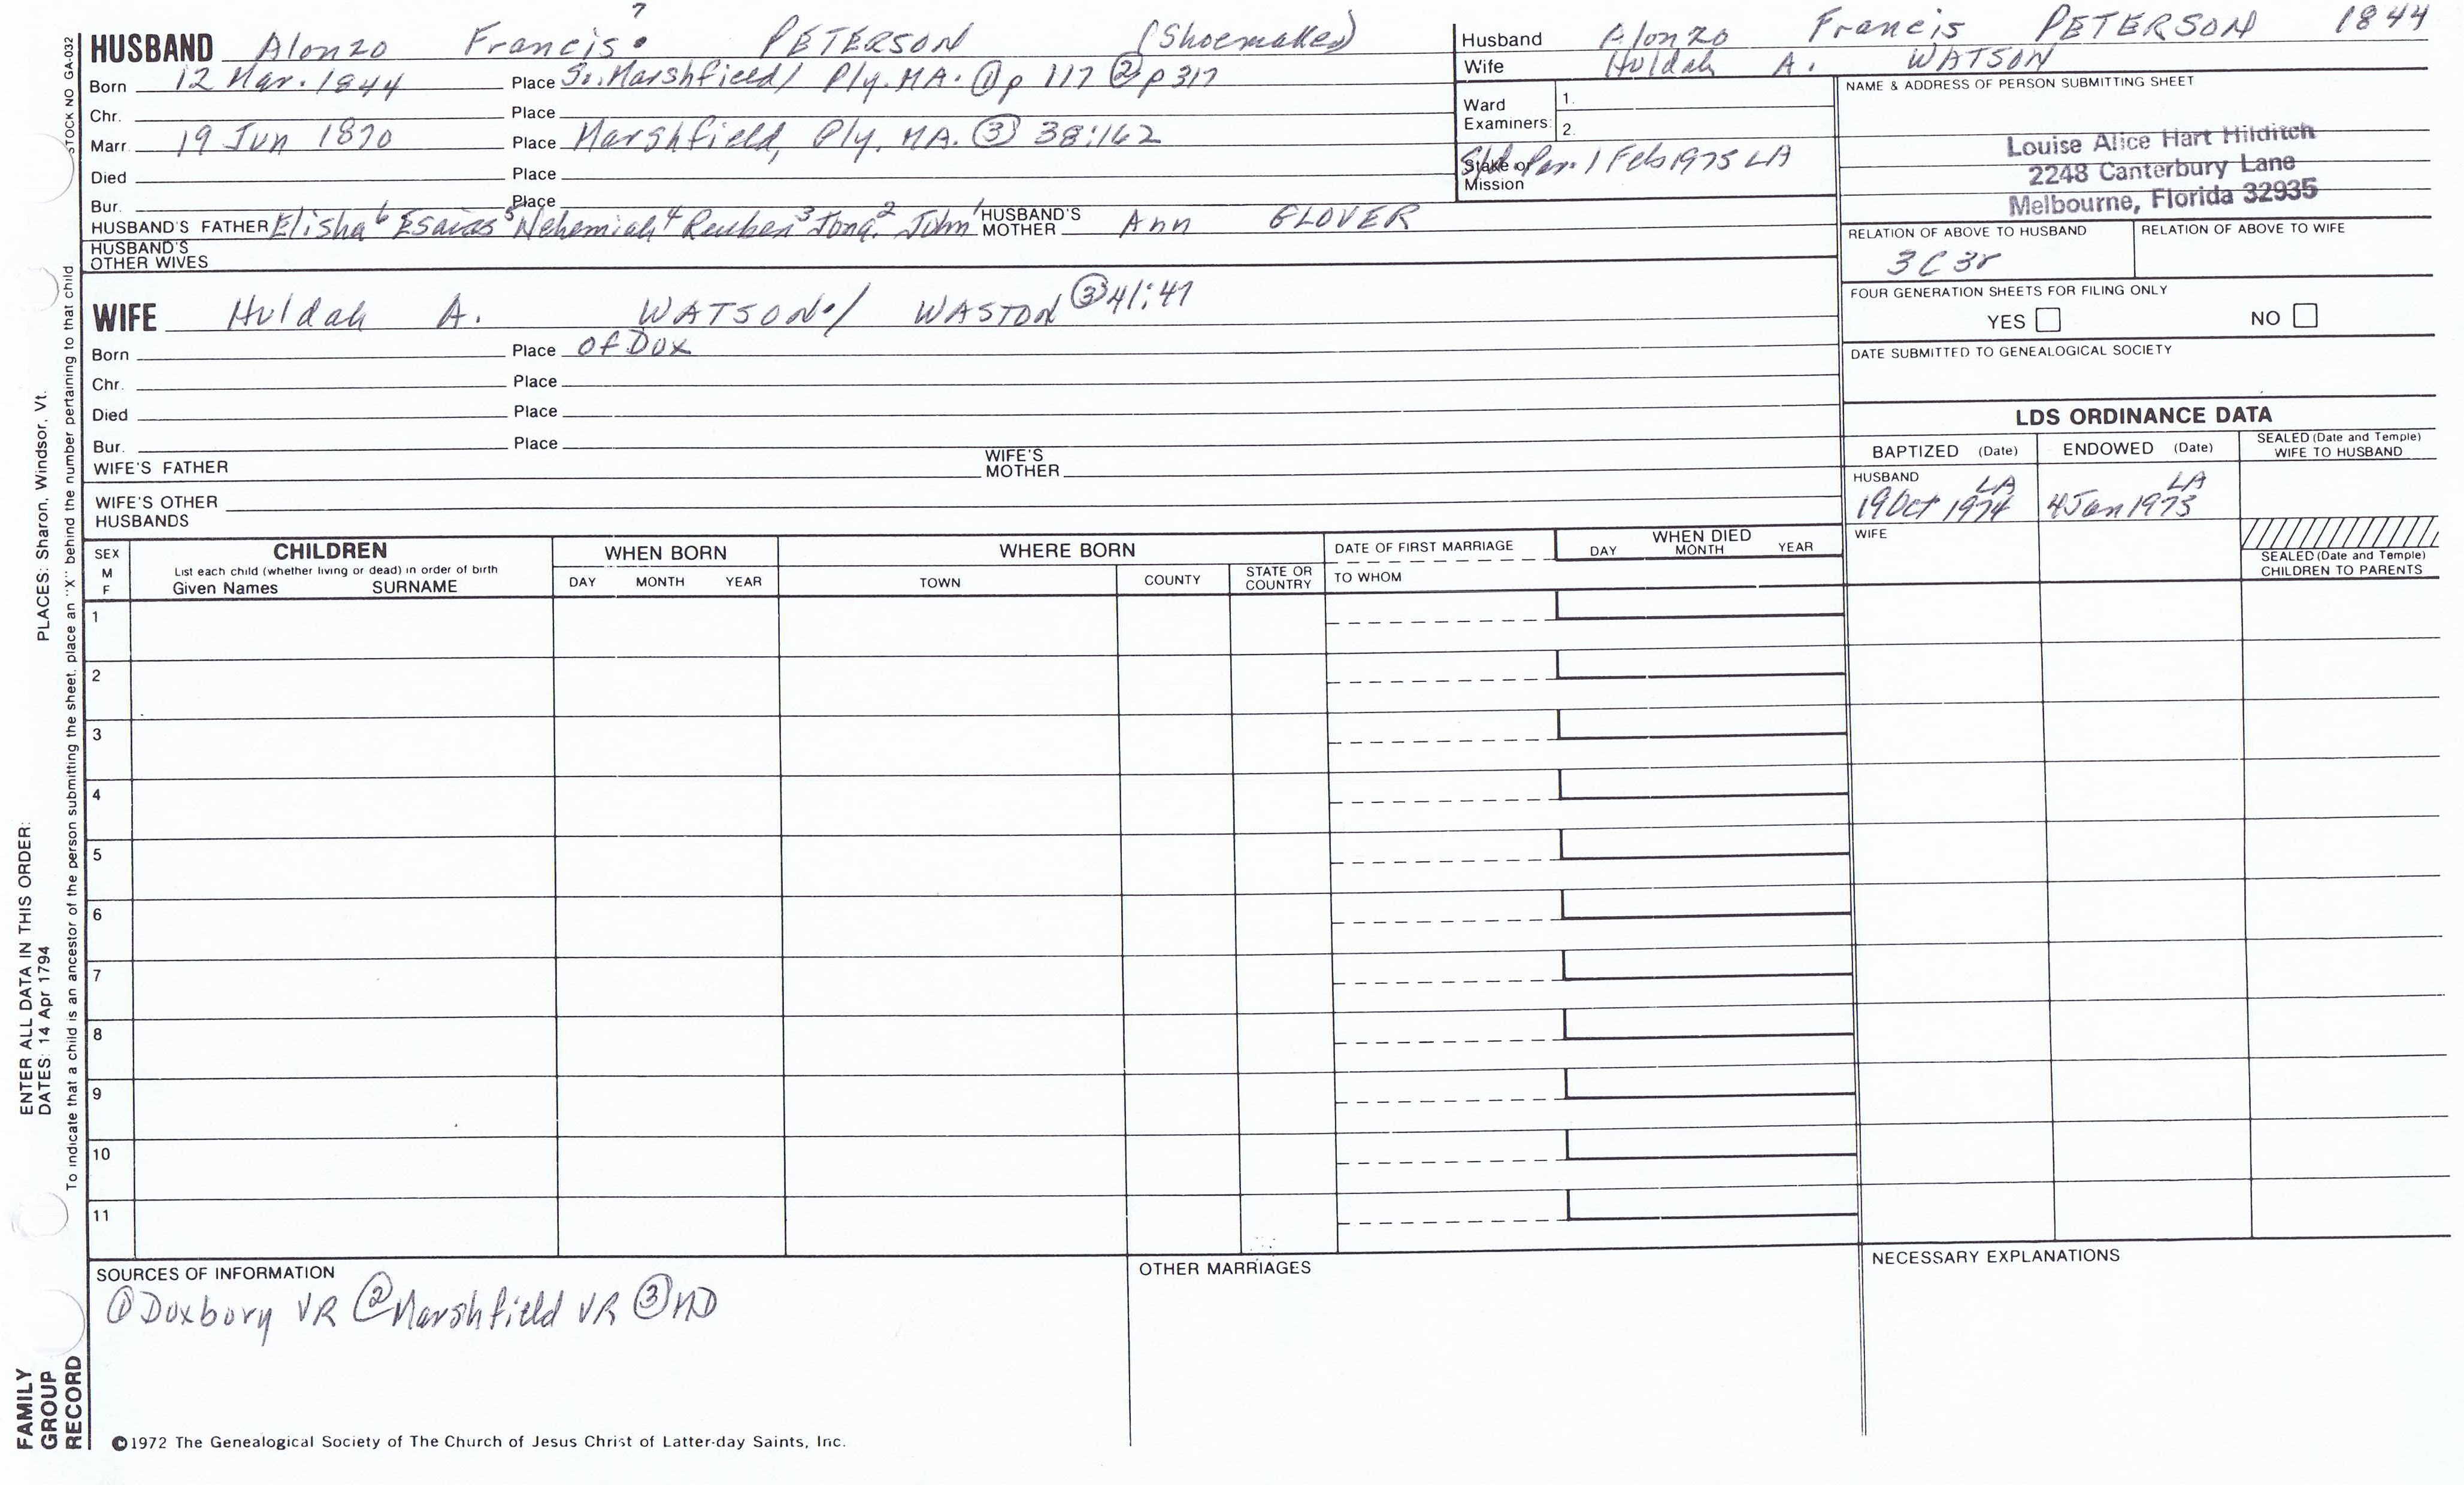 7
HUSBAND Alonzo Francis. PETERSON (Shoemaker)
Born 12 Mar. 1844 Place So. Marshfield/ Ply. MA. ① p 117 ② p 317
Chr. Place
Marr. 19 Jun 1870 Place Marshfield, Ply. MA. ③ 38:162
Died Place
Bur. Place
HUSBAND'S FATHER Elisha 6 Esaias 5 Nehemiah 4 Reuben 3 Jona. 2 John 1 HUSBAND'S MOTHER Ann GLOVER
HUSBAND'S OTHER WIVES
WIFE Huldah A. WATSON./ WASTON ③ 41:47
Born Place of Dux
Chr. Place
Died Place
Bur. Place
WIFE'S FATHER WIFE'S MOTHER
WIFE'S OTHER HUSBANDS
Husband Alonzo Francis PETERSON 1844
Wife Huldah A. WATSON
Ward Examiners: 1.
2.
Stake or Mission
Par. 1 Feb 1975 LA
NAME & ADDRESS OF PERSON SUBMITTING SHEET
Louise Alice Hart Hilditch
2248 Canterbury Lane
Melbourne, Florida 32935
RELATION OF ABOVE TO HUSBAND RELATION OF ABOVE TO WIFE
3C3r
FOUR GENERATION SHEETS FOR FILING ONLY
YES NO
DATE SUBMITTED TO GENEALOGICAL SOCIETY
LDS ORDINANCE DATA
BAPTIZED (Date) ENDOWED (Date) SEALED (Date and Temple) WIFE TO HUSBAND
HUSBAND LA LA
19 Oct 1974 4 Jan 1975
WIFE
SEALED (Date and Temple) CHILDREN TO PARENTS
SEX M F
CHILDREN
List each child (whether living or dead) in order of birth
Given Names SURNAME
WHEN BORN
DAY MONTH YEAR
WHERE BORN
TOWN COUNTY STATE OR COUNTRY
DATE OF FIRST MARRIAGE
TO WHOM
WHEN DIED
DAY MONTH YEAR
1
2
3
4
5
6
7
8
9
10
11
SOURCES OF INFORMATION
① Duxbury VR ② Marshfield VR ③ MD
OTHER MARRIAGES
NECESSARY EXPLANATIONS
©1972 The Genealogical Society of The Church of Jesus Christ of Latter-day Saints, Inc.
STOCK NO GA-032
To indicate that a child is an ancestor of the person submitting the sheet, place an "X" behind the number pertaining to that child
ENTER ALL DATA IN THIS ORDER:
DATES: 14 Apr 1794 PLACES: Sharon, Windsor, Vt.
FAMILY
GROUP
RECORD